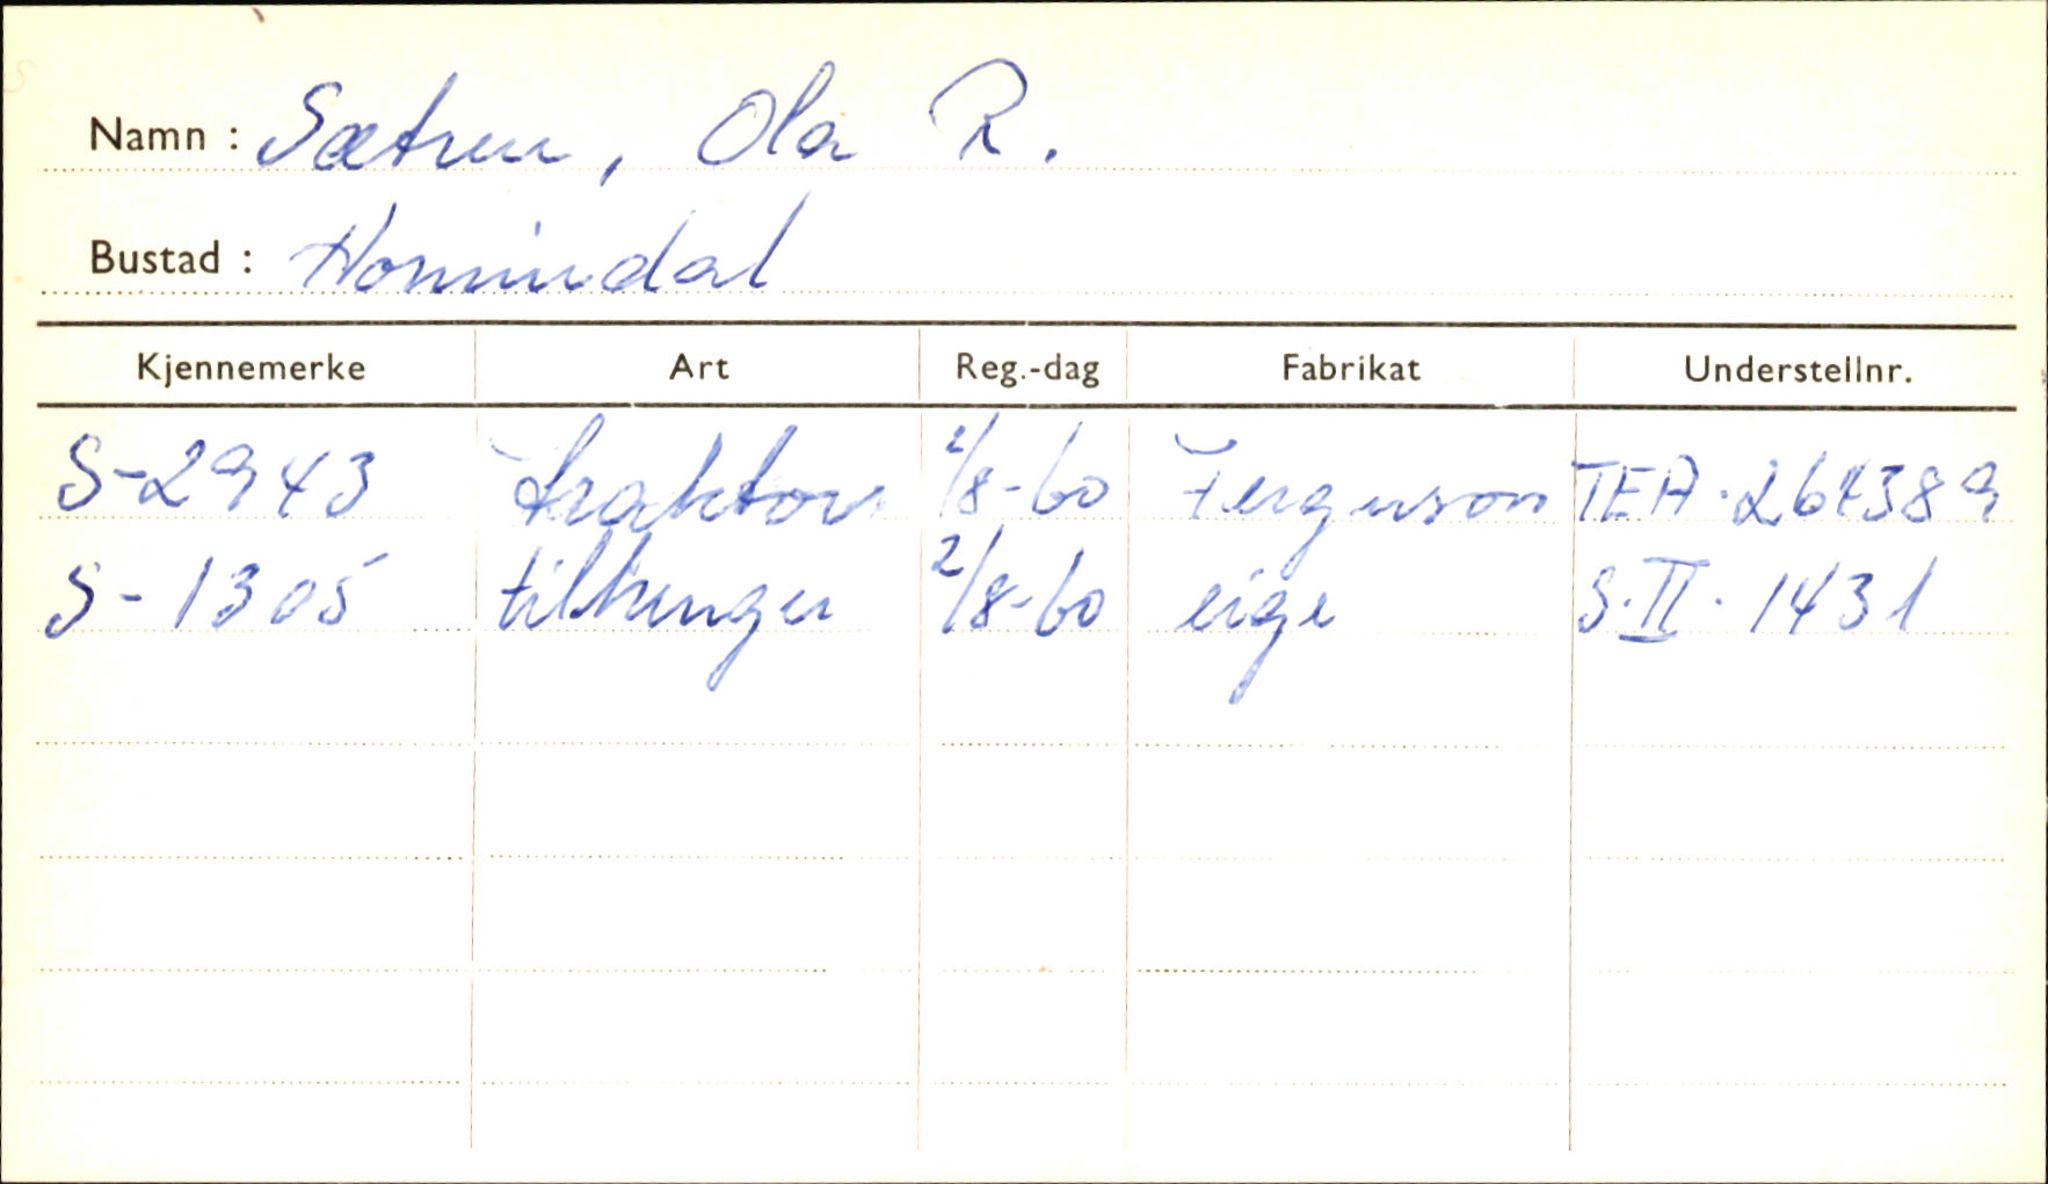 Namn : Sætren, Ola R.
Bustad : Hornindal
Kjennemerke Art Reg.-dag Fabrikat Understellnr.
S-2943 traktor 2/8-60 Ferguson TEA·264389
S-1305 tilhenger 2/8-60 eige S.II. 1431